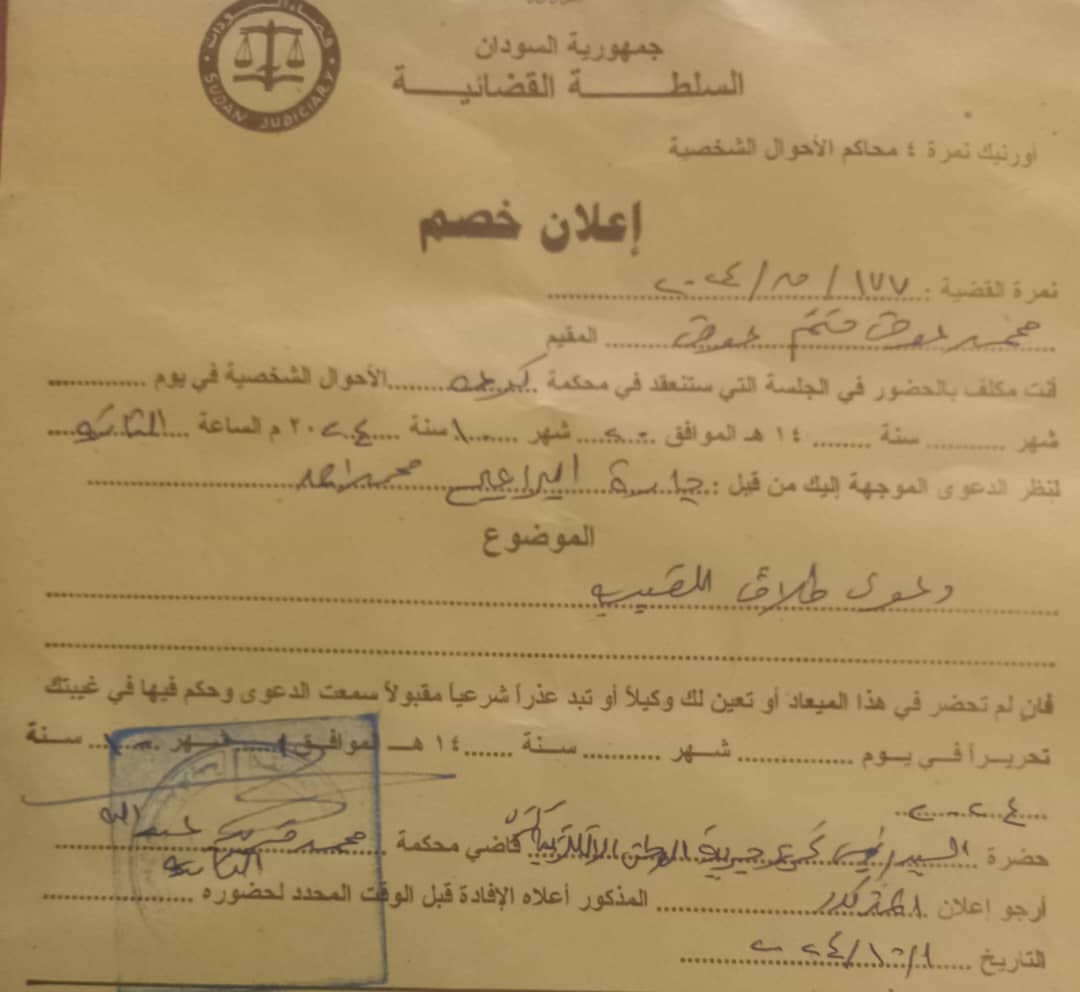 قضاء السودان
SUDAN JUDICIARY
جمهورية السودان
السلطـــة القضائيـــة
أورنيك نمرة ٤ محاكم الأحوال الشخصية
إعلان خصم
نمرة القضية : ١٧٧ / / ٢٠٢٤
محمد عوض عوض المقيم
أنت مكلف بالحضور في الجلسة التي ستنعقد في محكمة الأحوال الشخصية في يوم
شهر سنة ١٤ هـ الموافق شهر ١٠ سنة ٢٠٢٤ م الساعة
لنظر الدعوى الموجهة إليك من قبل : محمد احمد
الموضوع
دعوى طلاق للغيبة
فإن لم تحضر في هذا الميعاد أو تعين لك وكيلاً أو تبد عذراً شرعياً مقبولاً سمعت الدعوى وحكم فيها في غيبتك
تحريراً في يوم شهر سنة ١٤ هـ الموافق شهر سنة
٢٠٢٤
حضرة السيد قاضي محكمة محمد عبد الله
أرجو إعلان المذكور أعلاه الإفادة قبل الوقت المحدد لحضوره
التاريخ ١/١٠/٢٠٢٤